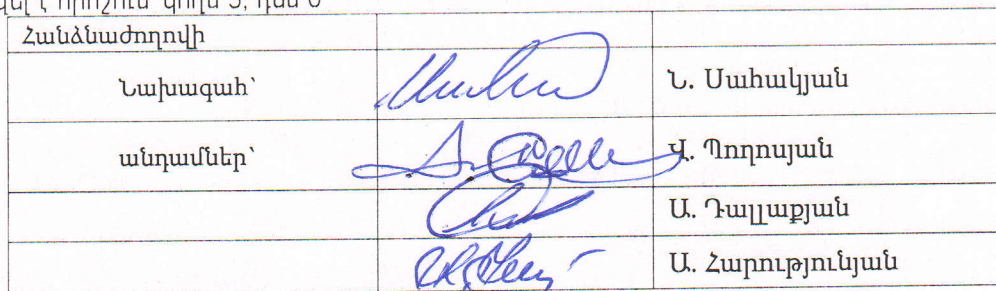 որոշում կողմ 5, դեմ 0
Հանձնաժողովի
Նախագահ՝ Ն. Սահակյան
անդամներ՝ Վ. Պողոսյան
Ա. Դալլաքյան
Ա. Հարությունյան